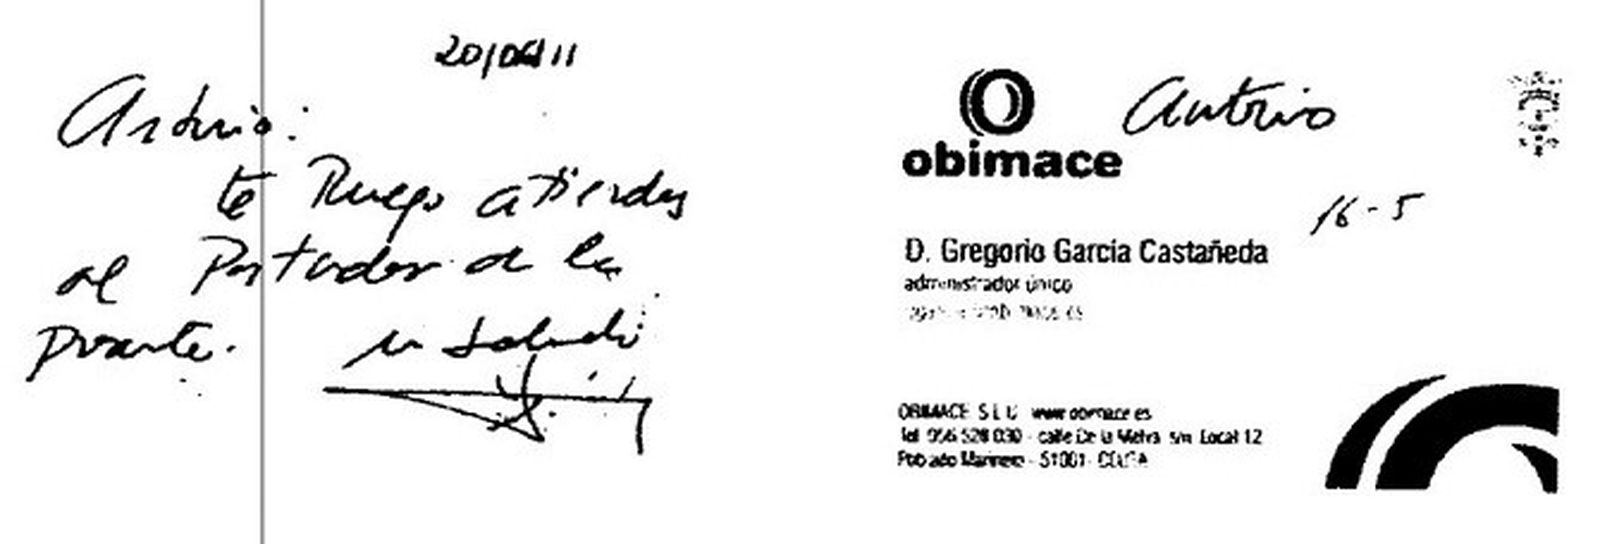 20/06/11
Arturio:
te Ruego atiendas
al Portador de la
Presente. un saludo
obimace
Antonio
16-5
D. Gregorio García Castañeda
administrador único
OBIMACE S.L.U. www.obimace.es
Tel. 956 528 030 - calle De la Melva, s/n. Local 12
Poblado Marinero - 51001- CEUTA